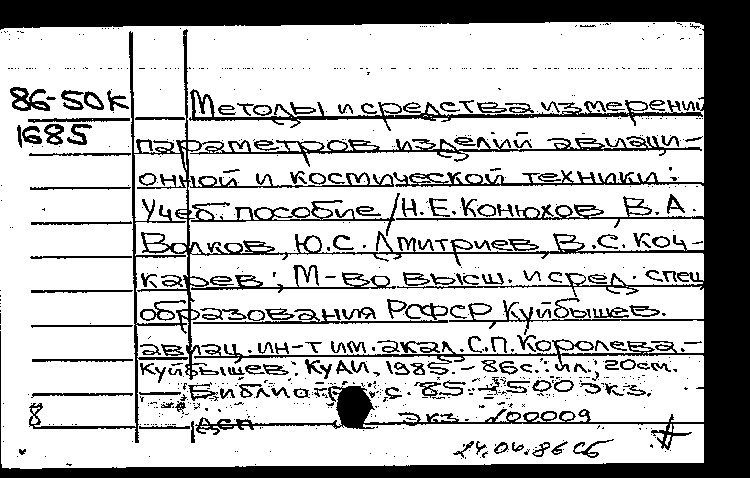 86-50К Методы и средства измерений
1685 параметров изделий авиаци-
онной и космической техники:
Учеб. пособие / Н.Е. Конюхов, В.А.
Волков, Ю.С. Дмитриев, В.С. Коч-
карев; М-во высш. и сред. спец.
образования РСФСР, Куйбышев.
авиац. ин-т им. акад. С.П. Королева.-
Куйбышев: КуАИ, 1985.- 86с.: ил.; 20см.
Библиогр.: с. 85.- 500 экз.
8 деп экз. №00009
24.04.86 сб